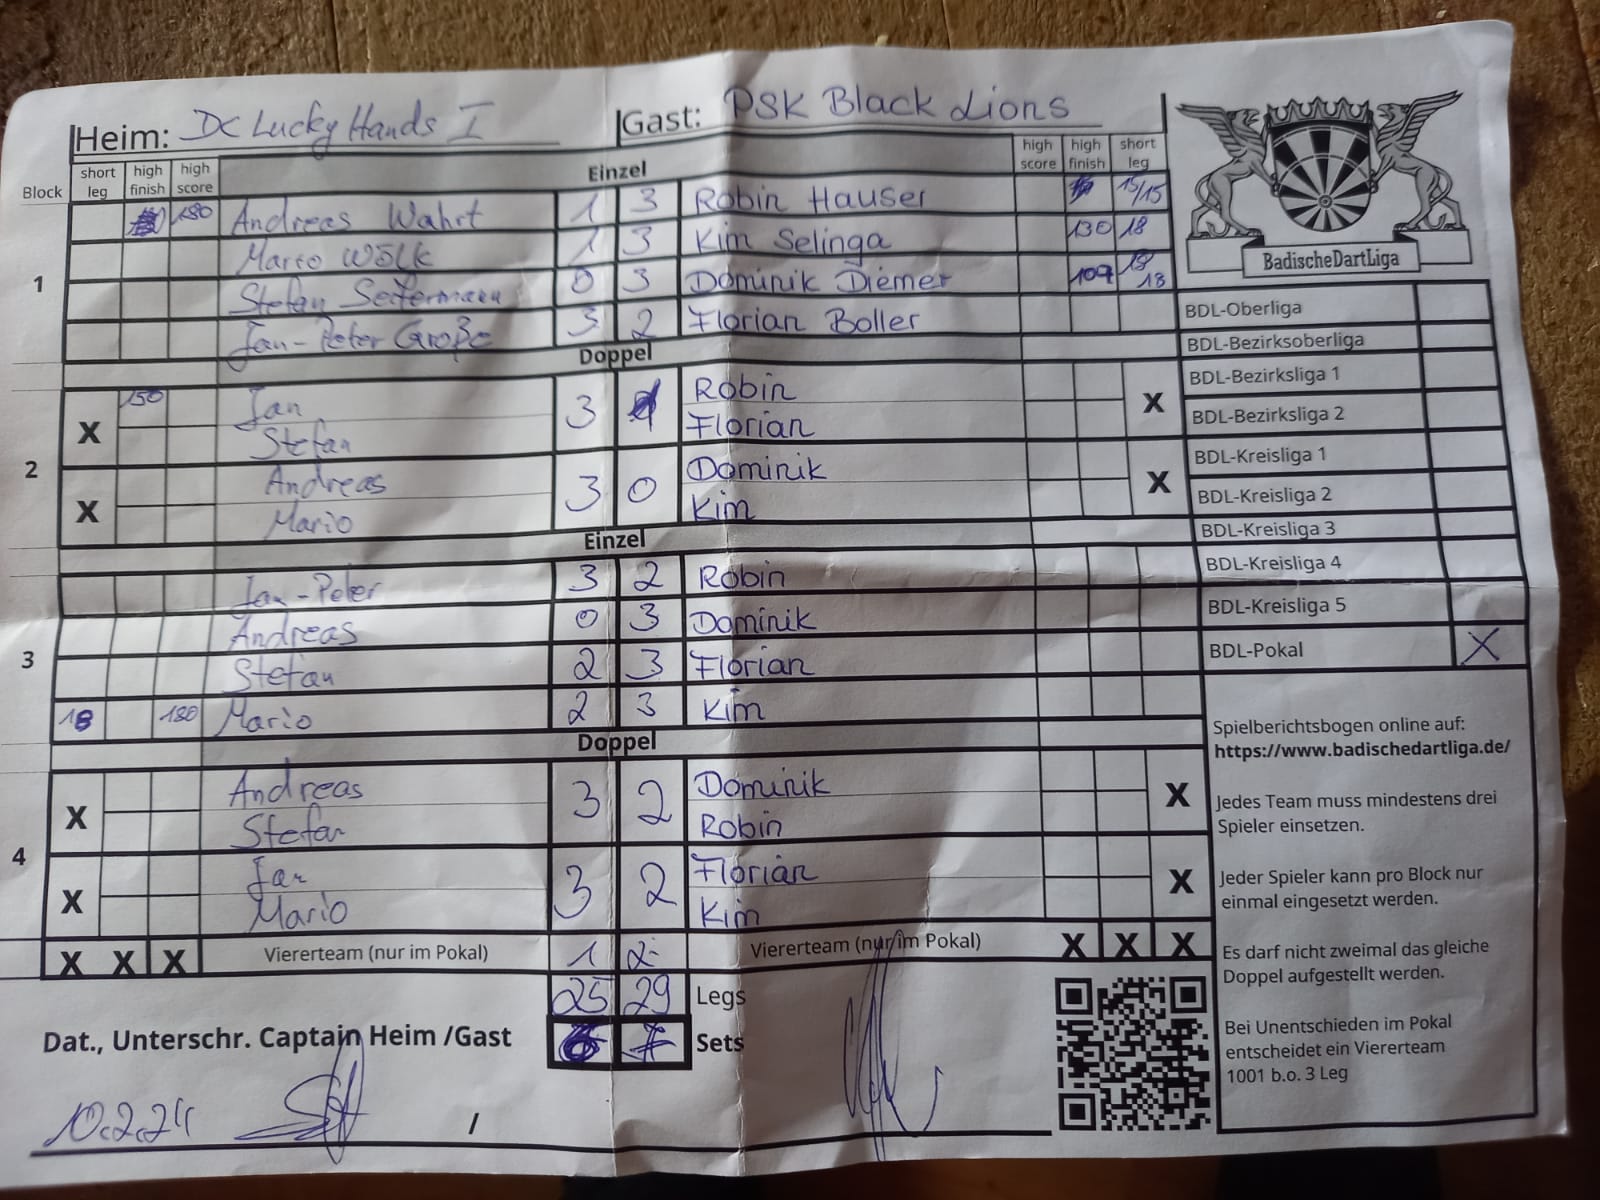 Heim: DC Lucky Hands I Gast: PSK Black Lions
Block short leg high finish high score Einzel high score high finish short leg
1
180 Andreas Wahrt 1 3 Robin Hauser 15/15
Mario Wölk 1 3 Kim Selinga 130 18
Stefan Seitermann 0 3 Dominik Diemer 109 18 18
Jan-Peter Große 3 2 Florian Boller
Doppel
2
X 150 Jan 3 Robin X
Stefan Florian
X Andreas 3 0 Dominik X
Mario Kim
Einzel
3
Jan-Peter 3 2 Robin
Andreas 0 3 Dominik
Stefan 2 3 Florian
18 180 Mario 2 3 Kim
Doppel
4
X Andreas 3 2 Dominik X
Stefan Robin
X Jan 3 2 Florian X
Mario Kim
X X X Viererteam (nur im Pokal) 1 2 Viererteam (nur im Pokal) X X X
25 29 Legs
Dat., Unterschr. Captain Heim /Gast 6 7 Sets
10.2.24 /
BadischeDartLiga
BDL-Oberliga
BDL-Bezirksoberliga
BDL-Bezirksliga 1
BDL-Bezirksliga 2
BDL-Kreisliga 1
BDL-Kreisliga 2
BDL-Kreisliga 3
BDL-Kreisliga 4
BDL-Kreisliga 5
BDL-Pokal X
Spielberichtsbogen online auf:
https://www.badischedartliga.de/
Jedes Team muss mindestens drei
Spieler einsetzen.
Jeder Spieler kann pro Block nur
einmal eingesetzt werden.
Es darf nicht zweimal das gleiche
Doppel aufgestellt werden.
Bei Unentschieden im Pokal
entscheidet ein Viererteam
1001 b.o. 3 Leg